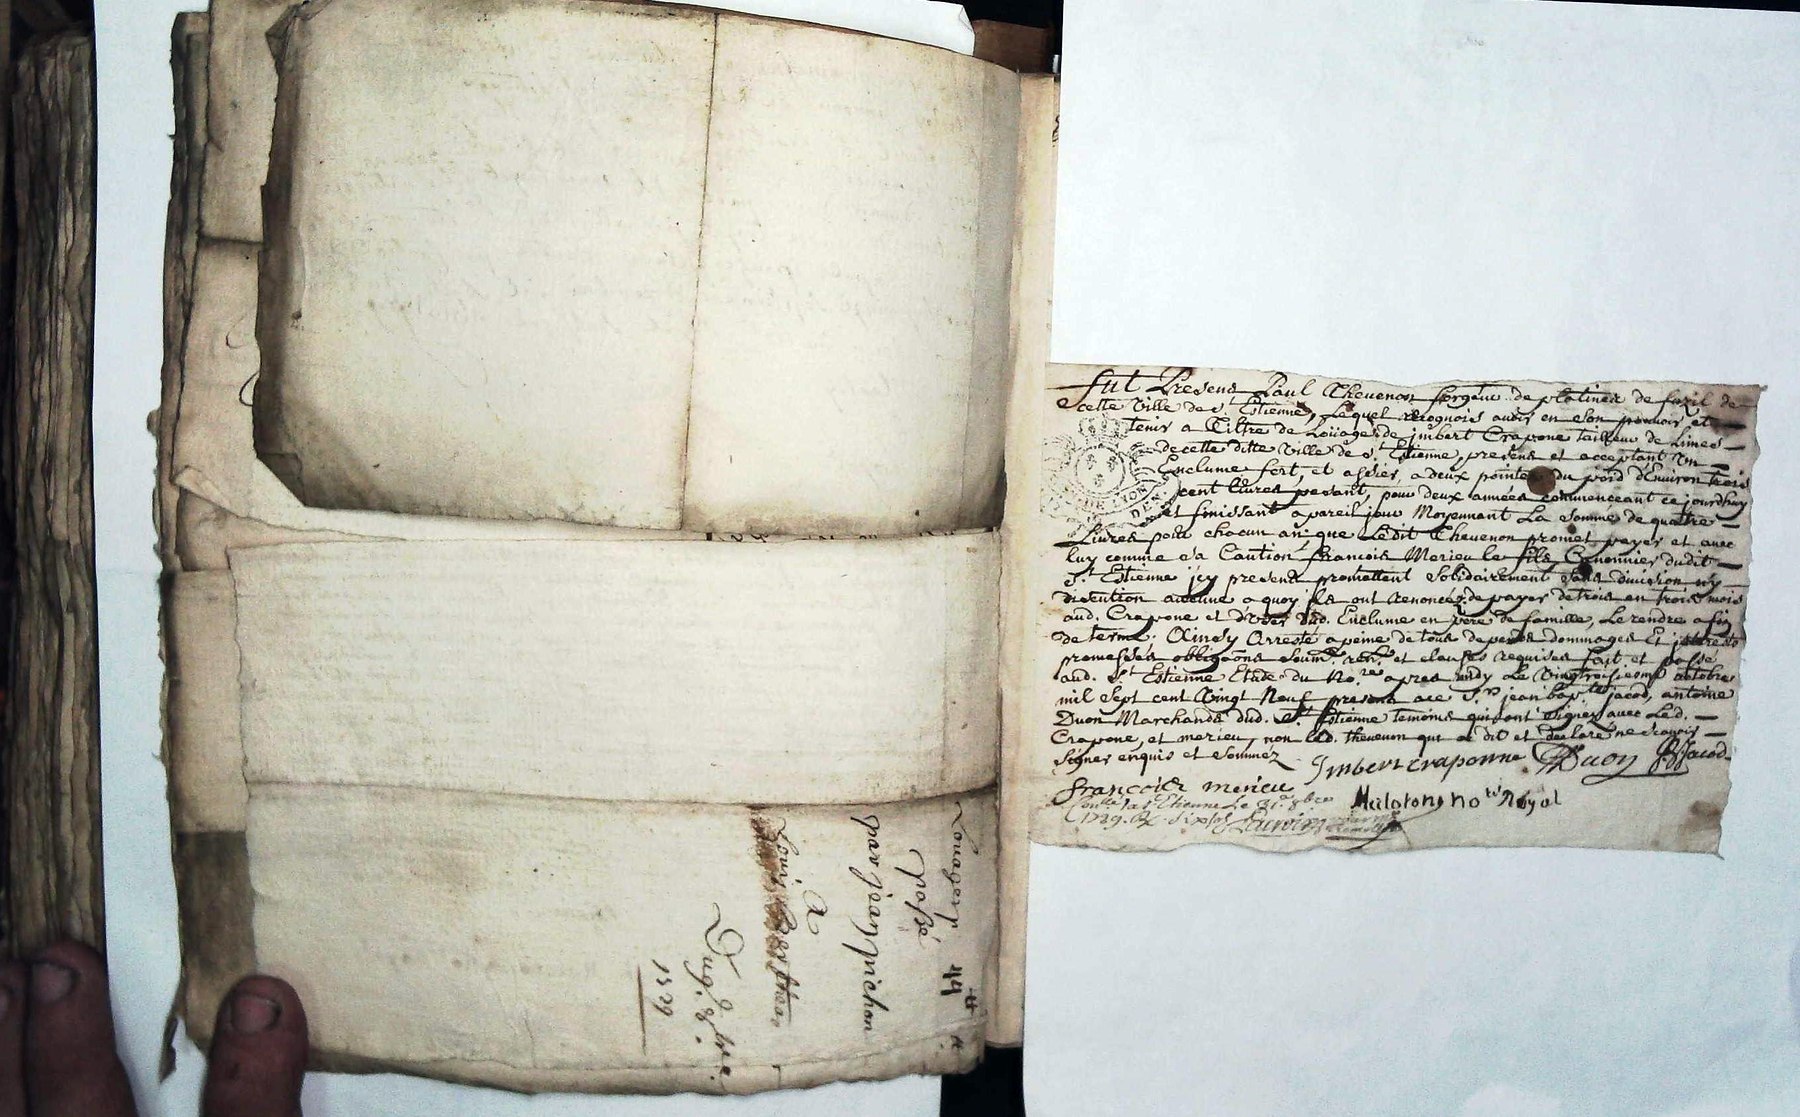 Louager 44
passé
par jean pichon
A
Louis
Du 8bre
1729
fut Present Paul Thevenon forgeur de platines de fuzil de
cette Ville de St Estienne, Lequel recognois avoir en son pouvoir et
tenir a Tiltre de Loüage de jmbert Crapone tailleur de Limes
de cette ditte Ville de St Estienne, present et acceptant Un
Enclume fert, et assier, a deux pointes du poid d'Environ trois
cent livres pesant, pour deux années commenceant ce jourdhuy
et finissant a pareil jour Moyennant La Somme de quattre
Livres pour chacun an que Ledit Thevenon promet payer et avec
luy comme sa Caution francois Merieu le fils Canonnier dudit
St Estienne jcy present promettent Solidairement sans division ny
discution aucune a quoy ils ont renoncéz de payer de trois en trois mois
aud. Crapone et d'user dud. Enclume en père de famille, Le rendre a fin
de terme. Ainsy Arresté a peine de tous depens dommages Et jnterests
promesses obligaõns soum. ren. et clauses requises fait et passé
aud. St Estienne Etude du No.re apres midy Le Vingtroisieme octobre
mil Sept cent Vingt Neuf presens a ce Srs jean bapte jacod, antoine
Duon Marchands dud. St Estienne temoins qui ont Signez avec Led.
Crapone, et merieu, non Led. thevenon qui a dit et declaré ne scavoir
Signer enquis et sommez
Jmbert craponne Duon JBJacod
francois merieu
Conllé a St Etienne Le 31e 8bre Mulatong nore Royal
1729. R. Six sols